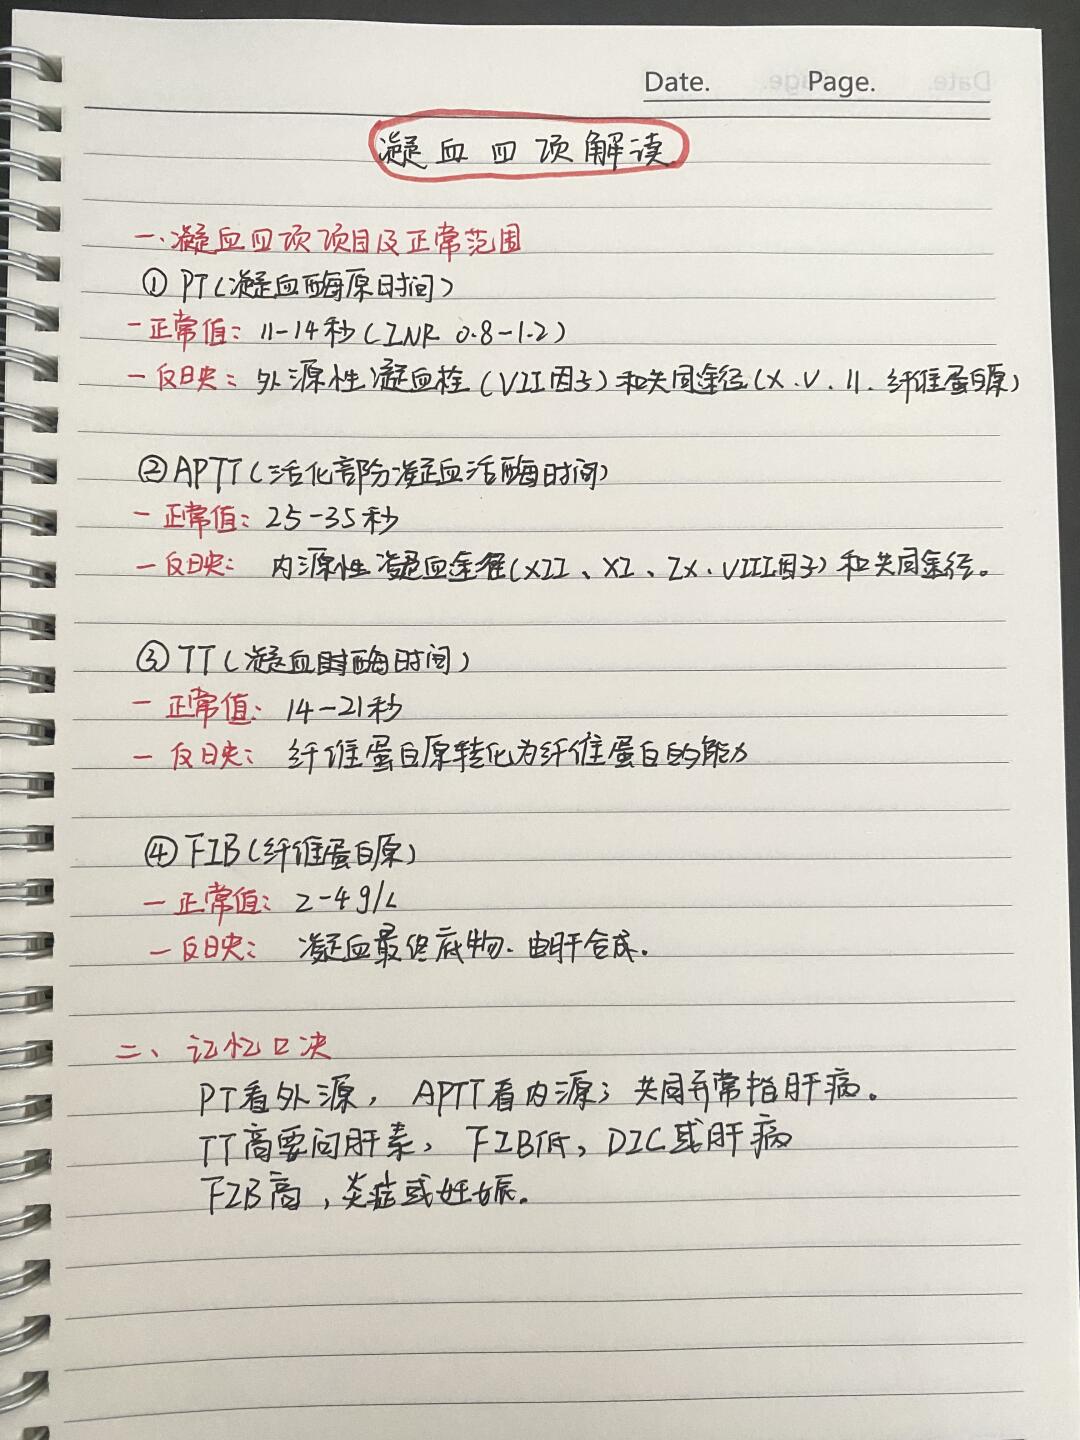 Date. Page.
凝血四项解读
一.凝血四项项目及正常范围
① PT(凝血酶原时间)
- 正常值: 11-14秒(INR 0.8-1.2)
- 反映: 外源性凝血栓(VII因子)和共同途径(X.V.II.纤维蛋白原)
② APTT(活化部分凝血活酶时间)
- 正常值: 25-35秒
- 反映: 内源性凝血途径(XII、XI、IX.VIII因子)和共同途径。
③ TT(凝血酶时间)
- 正常值: 14-21秒
- 反映: 纤维蛋白原转化为纤维蛋白的能力
④ FIB(纤维蛋白原)
- 正常值: 2-4g/L
- 反映: 凝血最终底物.由肝合成。
二、记忆口决
PT看外源, APTT看内源; 共同异常指肝病。
TT高要问肝素, FIB低, DIC或肝病
FIB高, 炎症或妊娠。